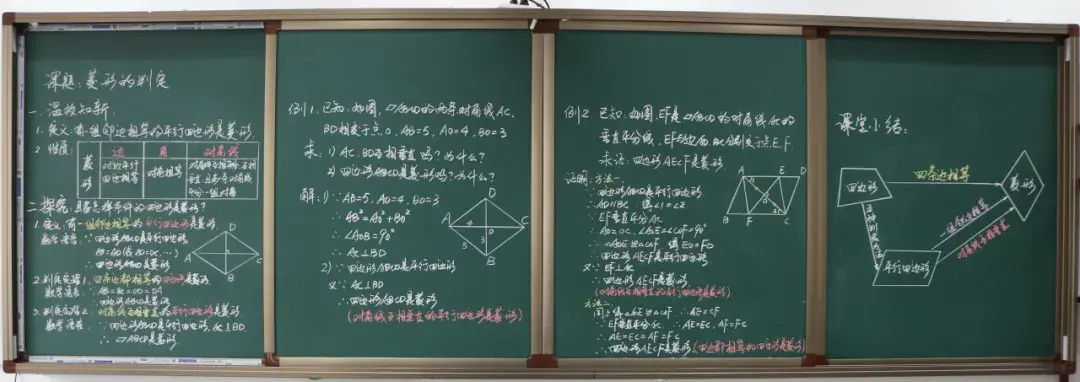 课题：菱形的判定
一．温故知新
1．定义：有一组邻边相等的平行四边形是菱形．
2．性质：
菱形
边 角 对角线
对边平行 四边相等
对角相等
对角线互相平分 互相垂直 且每一条对角线平分一组对角
二．探究：具备怎样条件的四边形是菱形？
1．定义：有一组邻边相等的平行四边形是菱形．
数学语言：∵四边形ABCD是平行四边形
∴四边形ABCD是菱形
A B C D
2．判定定理1：四条边都相等的四边形是菱形．
数学语言：∵AB=BC=DC=DA
∴四边形ABCD是菱形
3．判定定理2：对角线互相垂直的平行四边形是菱形．
数学语言：∵四边形ABCD是平行四边形 AC⊥BD
∴▱ABCD是菱形．
例1．已知：如图，▱ABCD的两条对角线AC、
BD相交于点O，AB=5，AO=4，BO=3
求：1）AC、BD互相垂直吗？为什么？
2）四边形ABCD是菱形吗？为什么？
解：1）∵AB=5，AO=4，BO=3
∴AB²=AO²+BO²
∴∠AOB=90°
∴AC⊥BD
2）∵四边形ABCD是平行四边形
又∵AC⊥BD
∴四边形ABCD是菱形
（对角线互相垂直的平行四边形是菱形）
D A 4 O C 5 3 B
例2．已知：如图，EF是▱ABCD的对角线AC的
垂直平分线，EF与边AD、BC分别交于点E、F．
求证：四边形AECF是菱形．
证明：方法一：
∵四边形ABCD是平行四边形
∴AD∥BC ∴得∠1=∠2
∵EF垂直平分AC
∴AO=OC，∠AOE=∠COF=90°
∴△AOE≌△COF 得EO=FO
∴四边形AECF是平行四边形
又∵EF⊥AC
∴四边形AECF是菱形
（对角线互相垂直的平行四边形是菱形）
A E D 1 O 2 B F C
方法二：
同上得△AOE≌△COF ∴AE=CF
∵EF垂直平分AC ∴AE=EC，AF=FC
∴AE=EC=AF=FC
∴四边形AECF是菱形（四边都相等的四边形是菱形）
课堂小结：
四边形
四条边相等
菱形
五种判定方法
一组邻边相等
对角线互相垂直
平行四边形